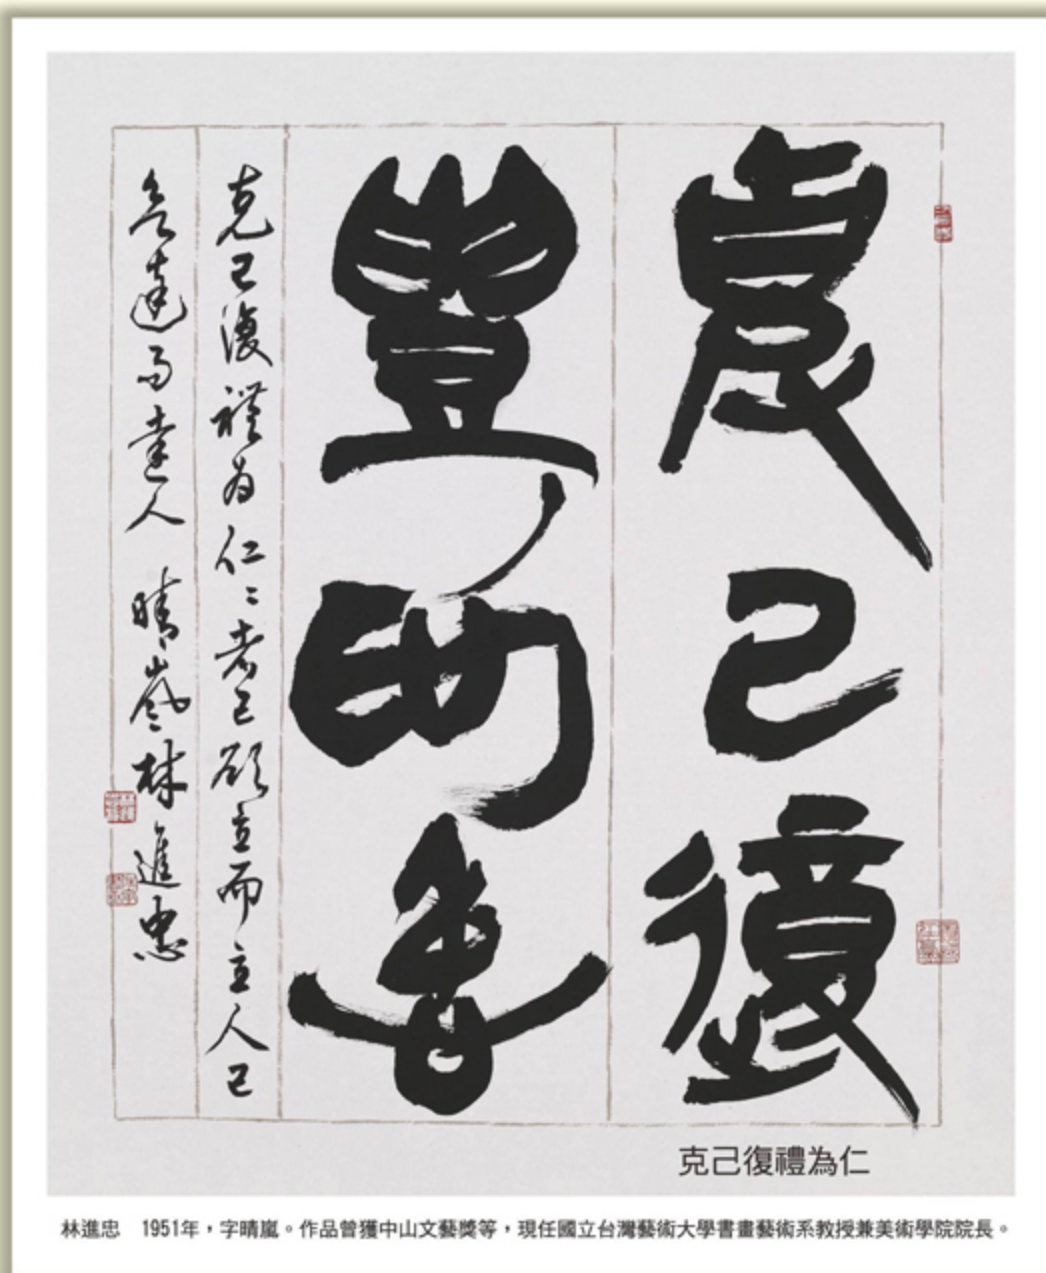 克己復
禮為仁
克己復禮為仁仁者己欲立而立人己
欲達而達人 晴嵐林進忠
克己復禮為仁
林進忠 1951年，字晴嵐。作品曾獲中山文藝獎等，現任國立台灣藝術大學書畫藝術系教授兼美術學院院長。